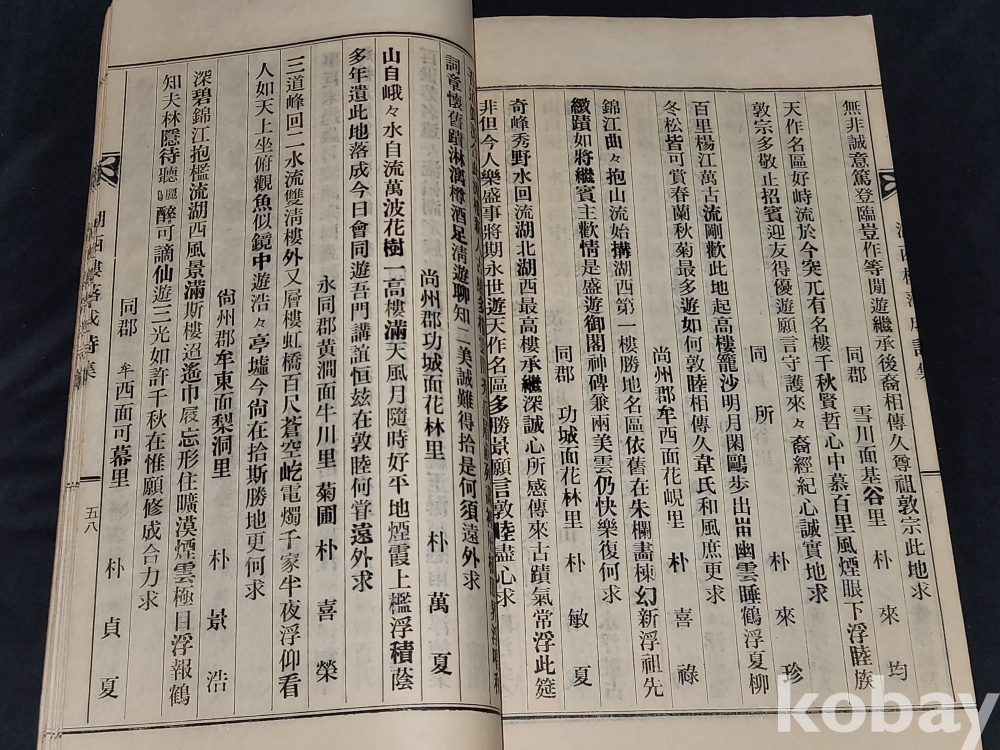 無非誠意篤登臨豈作等閒遊繼承後裔相傳久尊祖敦宗此地求
同郡 雪川面基谷里 朴來均
天作名區好峙流於今突兀有名樓千秋賢哲心中慕百里風煙眼下浮睦族
敦宗多敬止招賓迎友得優遊願言守護來々裔經紀心誠實地求
同所 朴來珍
百里楊江萬古流剛歡此地起高樓籠沙明月閑鷗步出峀幽雲睡鶴浮夏柳
冬松皆可賞春蘭秋菊最多遊如何敦睦相傳久韋氏和風庶更求
尙州郡牟西面花峴里 朴喜祿
錦江曲々抱山流始搆湖西第一樓勝地名區依舊在朱欄畵棟幻新浮祖先
緻蹟如將繼賓主歡情是盛遊御閣神碑兼兩美雲仍快樂復何求
同郡 功城面花林里 朴敏夏
奇峰秀野水回流湖北湖西最高樓承繼深誠心所感傳來古蹟氣常浮此筵
非但今人樂盛事將期永世遊天作名區多勝景願言敦睦盡心求
詞章懷舊蹟淋漓樽酒足淸遊聊知二美誠難得拾是何須遠外求
尙州郡功城面花林里 朴萬夏
山自峨々水自流萬波花樹一高樓滿天風月隨時好平地煙霞上檻浮積蔭
多年遺此地落成今日會同遊吾門講誼恒玆在敦睦何嘗遠外求
永同郡黃澗面牛川里 菊圃 朴喜榮
三道峰回二水流雙淸樓外又層樓虹橋百尺蒼空屹電燭千家半夜浮仰看
人如天上坐俯觀魚似鏡中遊浩々亭墟今尙在拾斯勝地更何求
尙州郡牟東面梨洞里 朴景浩
深碧錦江抱檻流湖西風景滿斯樓迢遙巾屐忘形住曠漠煙雲極目浮報鶴
知夫林隱待聽鸎醉可謫仙遊三光如許千秋在惟願修成合力求
同郡 牟西面可幕里 朴貞夏
湖西樓落成詩集
五八
kobay